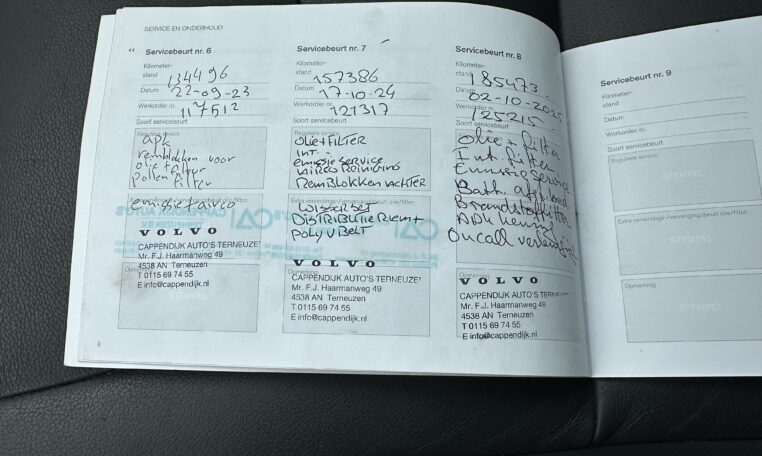 SERVICE EN ONDERHOUD
Servicebeurt nr. 6
Kilometer-
stand 134496
Datum 22-09-23
Werkorder nr. 117512
Soort servicebeurt
Reguliere service
apk
remblokken voor
olie + filter
pollen filter
emissie + airco
VOLVO
CAPPENDIJK AUTO'S TERNEUZE
Mr. F.J. Haarmanweg 49
4538 AN Terneuzen
T 0115 69 74 55
E info@cappendijk.nl
Opmerking
STEMPEL
8
Servicebeurt nr. 7
Kilometer-
stand 157386
Datum 17-10-24
Werkorder nr. 121317
Soort servicebeurt
Reguliere service
OLIE + FILTER
INT -
EMISSIE SERVICE
AIRCO REINIGING
REMBLOKKEN ACHTER
Extra verversings-/vervangingsbeurt olie/filter:
WISSERSET
DISTRIBUTIE RIEM +
POLY V BELT
VOLVO
Opmerking
CAPPENDIJK AUTO'S TERNEUZE
Mr. F.J. Haarmanweg 49
4538 AN Terneuzen
T 0115 69 74 55
E info@cappendijk.nl
Servicebeurt nr. 8
Kilometer-
stand 185473
Datum 02-10-2025
Werkorder nr. 125215
Soort servicebeurt
Olie + filter
Int. filter
Emissie service
Batt.
Brandstoffilter
APK keuring
Oncall
Opmerking
VOLVO
CAPPENDIJK AUTO'S TERNEU
Mr. F.J. Haarmanweg 49
4538 AN Terneuzen
T 0115 69 74 55
E info@cappendijk.nl
Servicebeurt nr. 9
Kilometer-
stand
Datum
Werkorder nr.
Soort servicebeurt
Reguliere service
STEMPEL
Extra verversings-/vervangingsbeurt olie/filter:
STEMPEL
Opmerking
STEMPEL